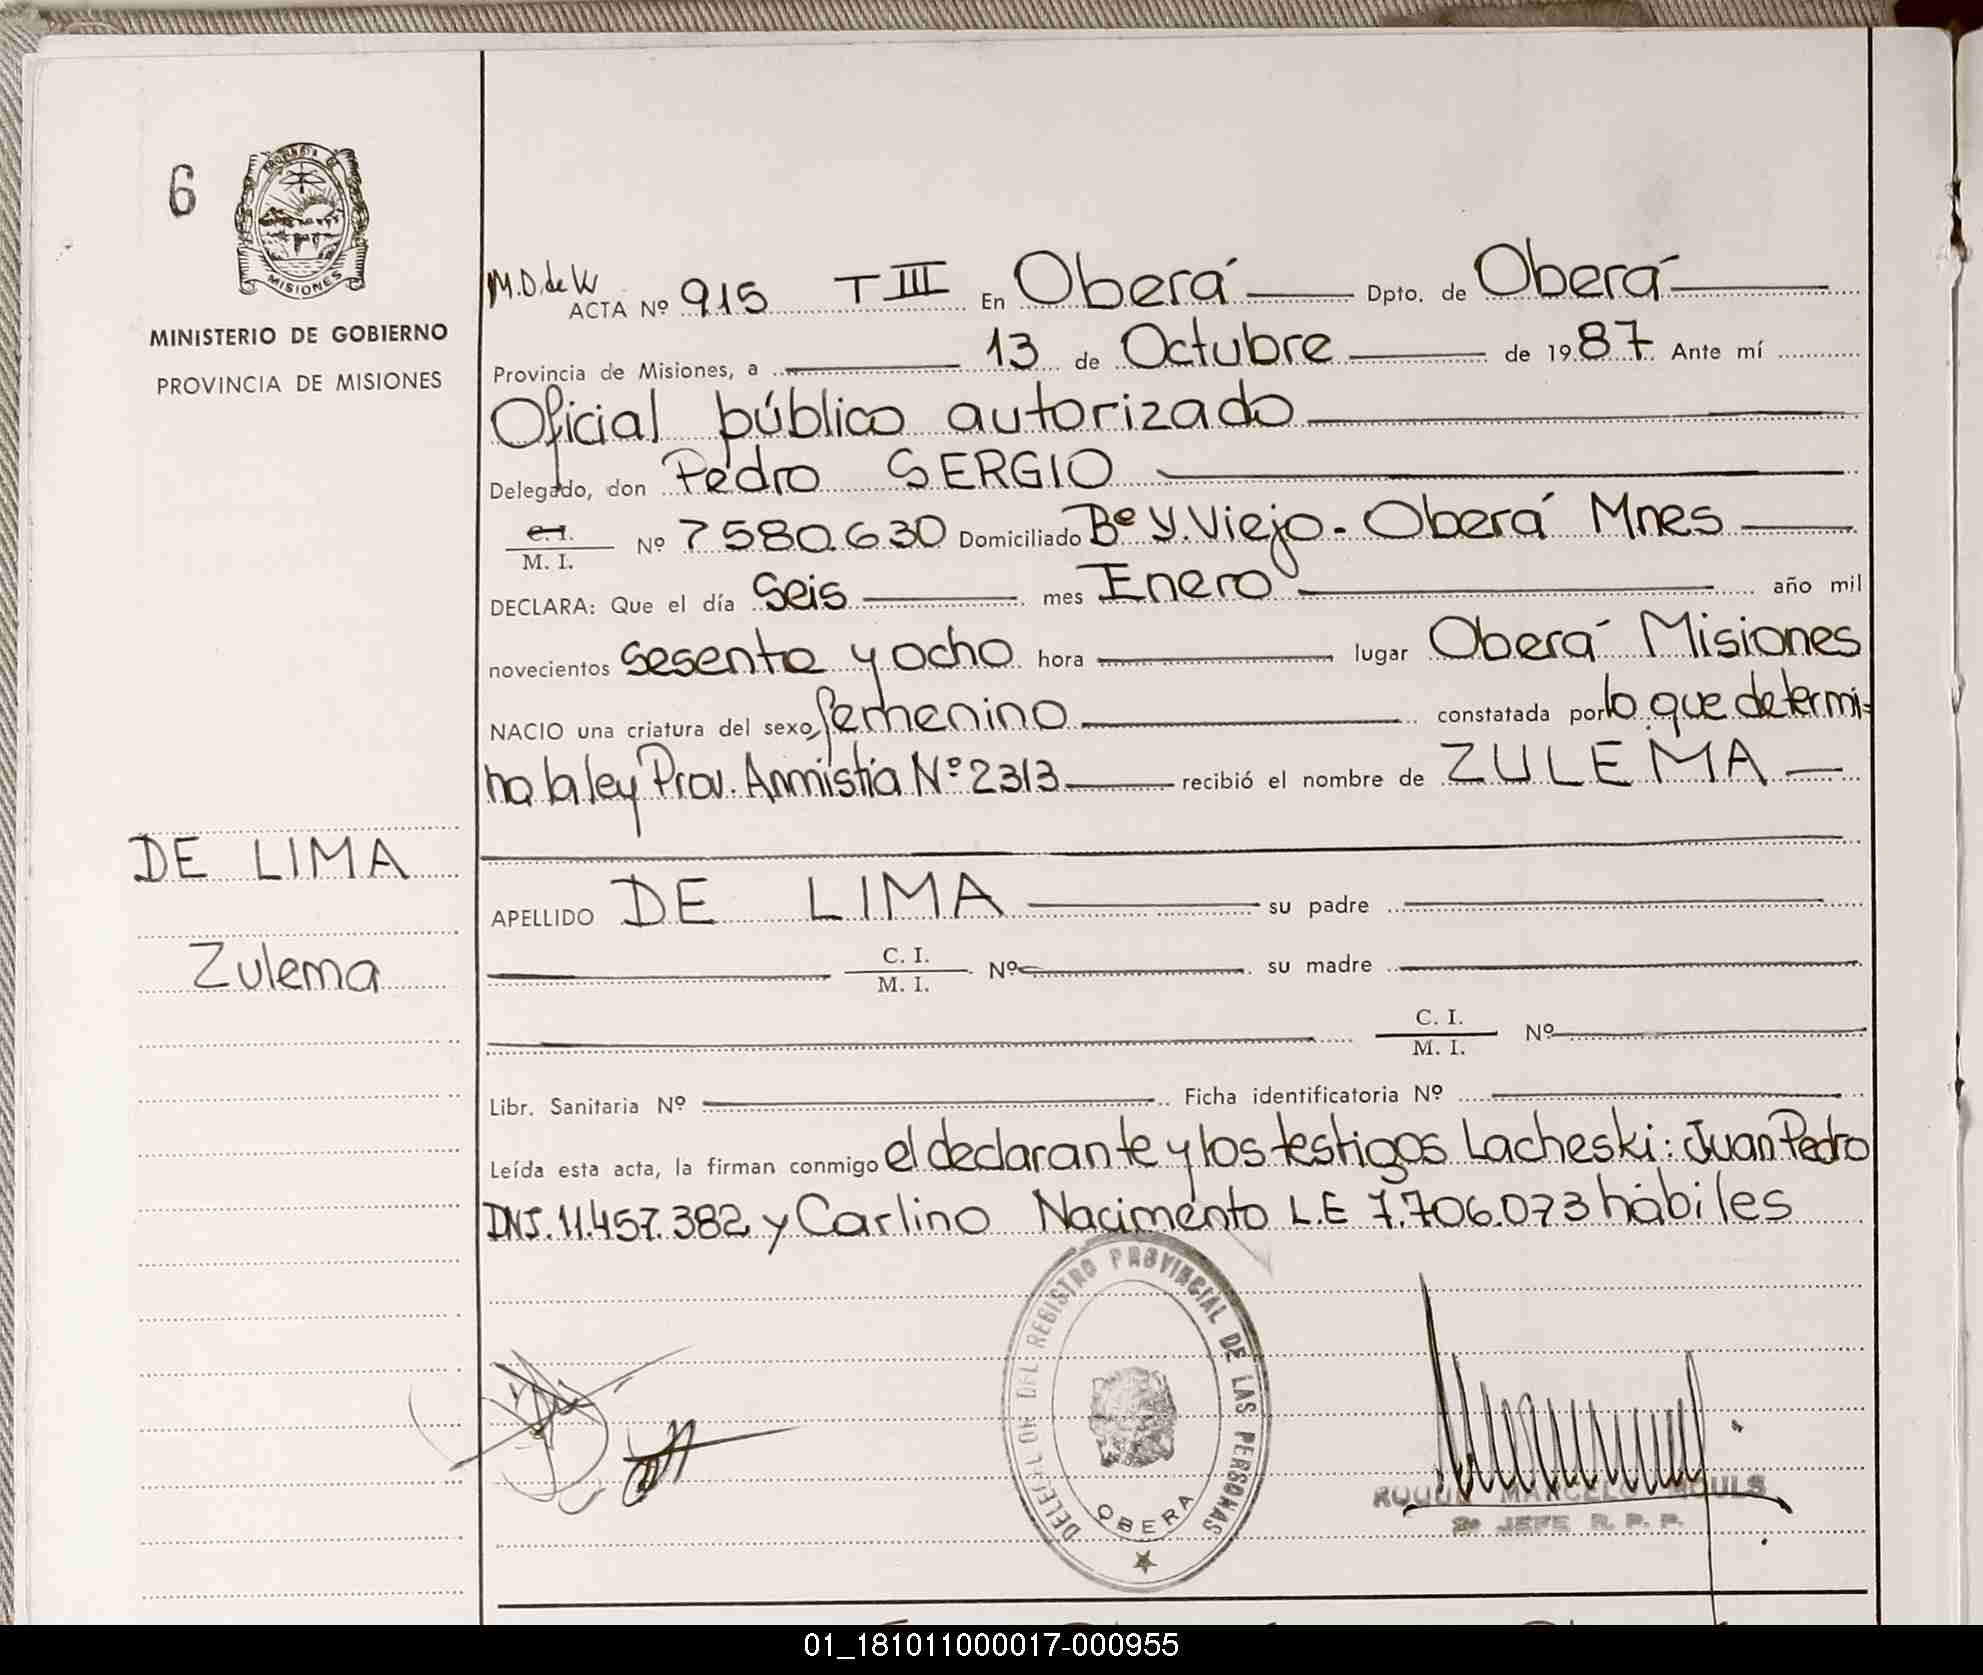 6
PROVINCIA DE
MISIONES
MINISTERIO DE GOBIERNO
PROVINCIA DE MISIONES
M.D. de W
ACTA Nº 915 T III En Oberá Dpto. de Oberá
Provincia de Misiones, a 13 de Octubre de 1987 Ante mí
Oficial público autorizado
Delegado, don Pedro SERGIO
C.I.
M. I. Nº 7580.630 Domiciliado Bº Y. Viejo - Oberá Mnes
DECLARA: Que el día Seis mes Enero año mil
novecientos sesenta y ocho hora lugar Oberá Misiones
NACIO una criatura del sexo femenino constatada por lo que determi-
na la ley Prov. Anmistía Nº 2313 recibió el nombre de ZULEMA
DE LIMA
APELLIDO DE LIMA su padre
Zulema
C. I.
M. I. Nº su madre
C. I.
M. I. Nº
Libr. Sanitaria Nº Ficha identificatoria Nº
Leída esta acta, la firman conmigo el declarante y los testigos Lacheski: Juan Pedro
DNI. 11.457.382 y Carlino Nacimento L.E 7.706.073 hábiles
DELEGACION DEL REGISTRO PROVINCIAL DE LAS PERSONAS
OBERA
ROQUE MARCELO MOULS
2º JEFE R. P. P.
01_181011000017-000955